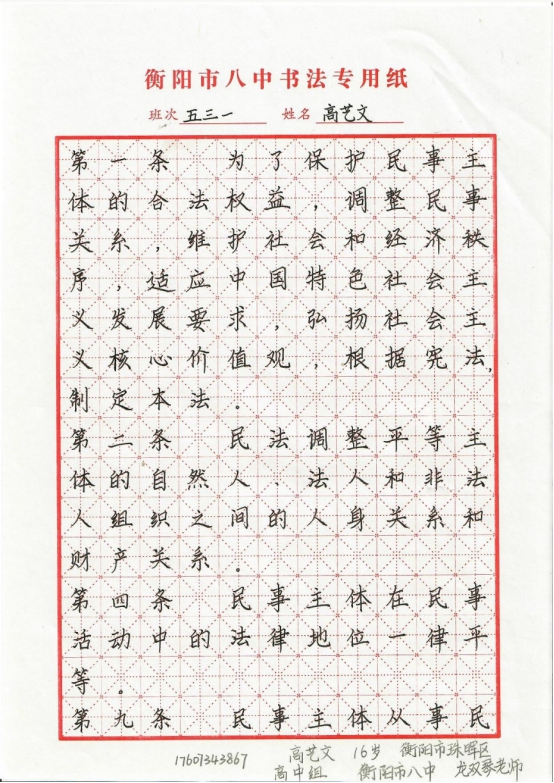 衡阳市八中书法专用纸
班次 五三一 姓名 高艺文
第一条 为了保护民事主
体的合法权益，调整民事
关系，维护社会和经济秩
序，适应中国特色社会主
义发展要求，弘扬社会主
义核心价值观，根据宪法，
制定本法。
第二条 民法调整平等主
体的自然人、法人和非法
人组织之间的人身关系和
财产关系。
第四条 民事主体在民事
活动中的法律地位一律平
等。
第九条 民事主体从事民
17607343867 高艺文 16岁 衡阳市珠晖区
高中组 衡阳市八中 龙双琴老师